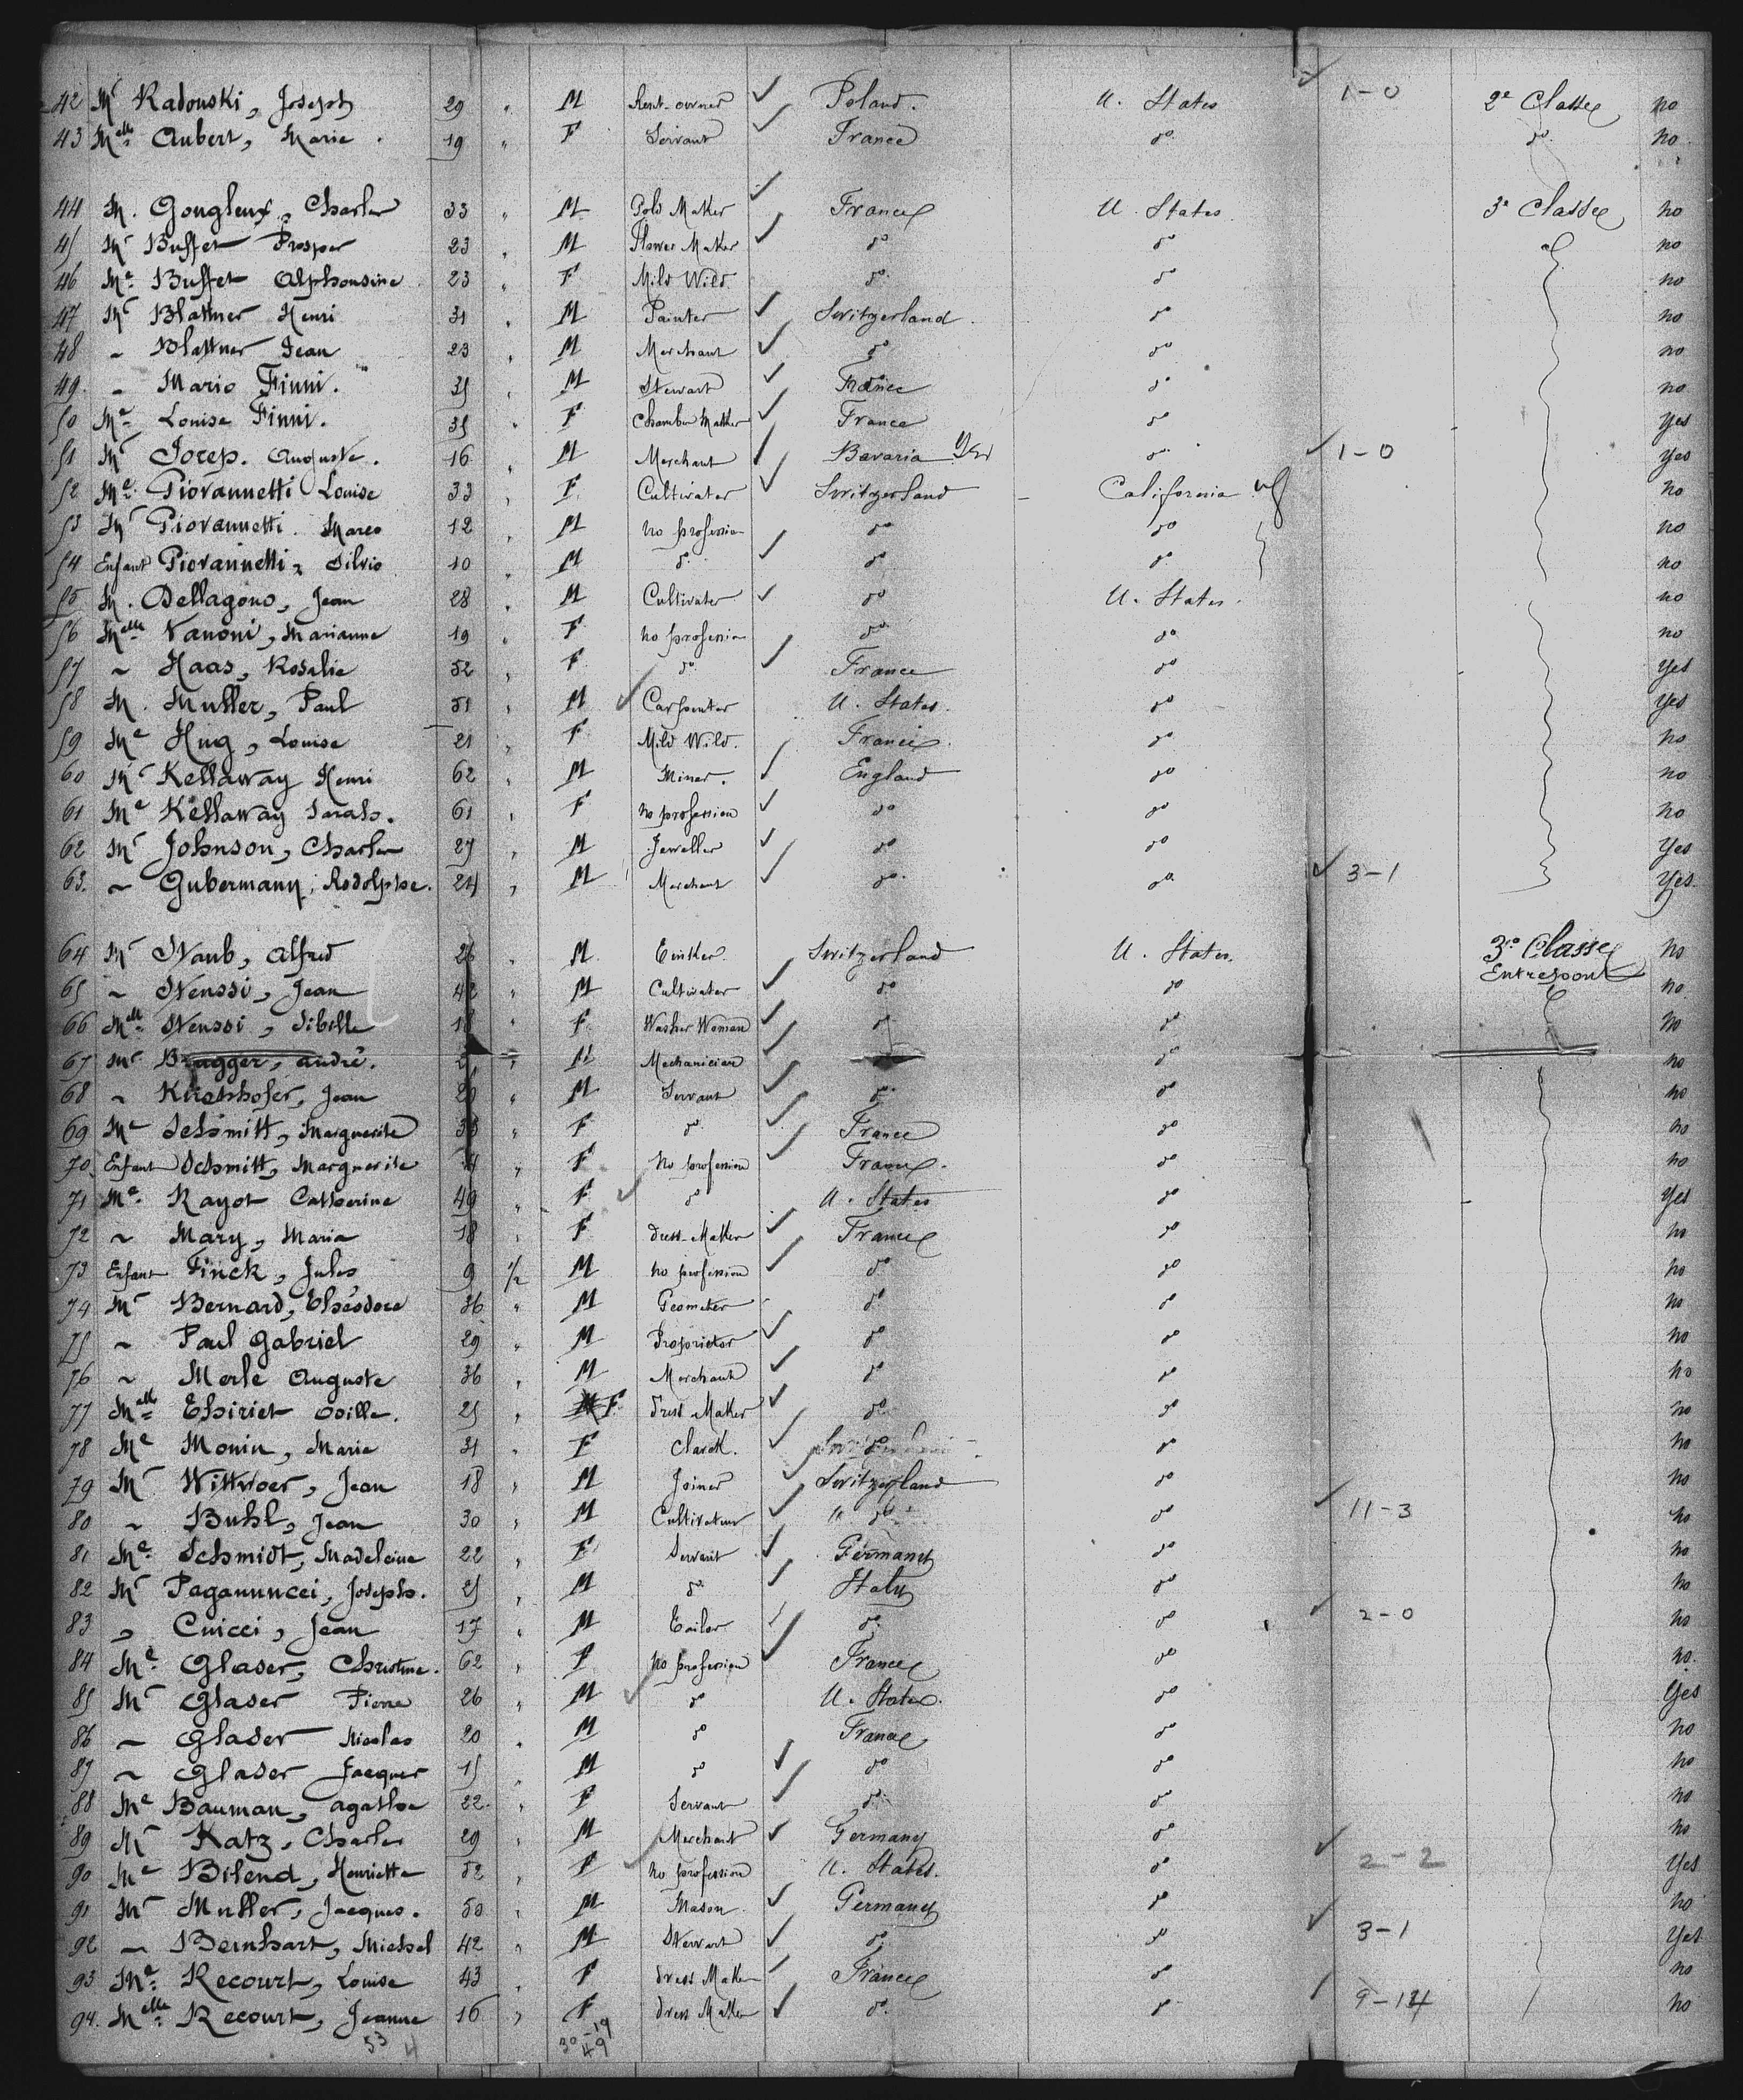 42 Mr Radouski, Joseph 29 " M Rent-owner ✓ Poland. U. States ✓ 1-0 2e Classe no
43 Melle Aubert, Marie. 19 " F Servant ✓ France do do no
44 M. Gougleux, Charles 33 " M Gold Maker ✓ France U. States 3e Classe no
45 Mr Buffet Prosper 23 " M Flower Maker ✓ do do no
46 Me Buffet Alphonsine 23 " F Mild Wild. do do no
47 Mr Blattner Henri 31 " M Painter ✓ Switzerland do no
48 ~ Blattner Jean 23 " M Merchant ✓ do do no
49. ~ Mario Finni. 35 " M Stewart ✓ France do no
50 Me Louise Finni. 35 " F Chamber Maker ✓ France do Yes
51 Mr Jorep. Auguste. 16 " M Merchant ✓ Bavaria Yes do ✓ 1-0 Yes
52 Me Giovannetti Louise 33 " F Cultivater ✓ Switzerland California no
53 Mr Giovannetti. Marco 12 " M no profession do do no
54 Enfant Giovannetti, Silvio 10 " M do ✓ do do no
55 M. Dellagono, Jean 28 " M Cultivater ✓ do U. States. no
56 Melle Vanoni, Marianne 19 " F no profession do do no
57 ~ Haas, Rosalie 52 " F do ✓ France do Yes
58 M. Muller, Paul 51 " M ✓ Carpenter U. States. do Yes
59 Me Hug, Louise 21 " F Mild Wild. France. do no
60 Mr Kellaway Henri 62 " M Miner. ✓ England do no
61 Me Kellaway Sarah. 61 " F no profession ✓ do do no
62 Mr Johnson, Charles 27 " M Jeweller ✓ do do Yes
63. ~ Gubermann, Rodolphe. 24 " M Merchant ✓ do do ✓ 3-1 Yes.
64 Mr Staub, Alfred 26 " M Switzerland U. States. 3e Classe no
Entrepont
65 ~ Stenssi, Jean 42 " M Cultivater ✓ do do no
66 Melle Stenssi, Sibille 18 " F Washer Woman ✓ do do no
67 Mr Brugger, André. " M Mechanician ✓ do no
68 ~ Kirchhofer, Jean " M Servant ✓ do do no
69 Me Schmitt, Marguerite " F do ✓ France do no
70 Enfant Schmitt, Marguerite " F No profession ✓ France. do no
71 Me Rayot Catherine 49 " F ✓ do U. States do Yes
72 ~ Mary, Maria 18 " F dress-Maker ✓ France do no
73 Enfant Finck, Jules 9 1/2 M no profession ✓ do do no
74 Mr Bernard, Théodore 36 " M Geometer do do no
75 ~ Paul Gabriel 29 " M Proprietor ✓ do do no
76 ~ Merle Auguste 36 " M Merchant ✓ do do no
77 Melle Thiriet Odille. 25 " F Dress Maker ✓ do do no
78 Me Monin, Maria 31 " F Clarck. ✓ do do no
79 Mr Wittwoer, Jean 18 " M Joiner ✓ Switzerland do no
80 ~ Buhl, Jean 30 " M Cultivateur ✓ " do do ✓ 11-3 no
81 Me Schmidt, Madeleine 22 " F Servant ✓ Germany do no
82 Mr Paganuncci, Joseph. 25 " M do ✓ Italy do no
83 " Cuicci, Jean 17 " M Tailor ✓ do do ✓ 2-0 no
84 Me Glaser, Christine. 62 " F No profession ✓ France do no.
85 Mr Glaser Pierre 26 " M ✓ do U. States. do Yes
86 ~ Glaser Nicolas 20 " M do France do no
87 ~ Glaser Jacques 15 " M do ✓ do do no
88 Me Bauman, Agathe 22. " F Servant ✓ do do no
89 Mr Katz, Charles 29 " M Merchant ✓ Germany do no
90 Me Bilend, Henriette 52 " F ✓ No profession U. States. do ✓ 2-2 Yes
91 Mr Muller, Jacques. 50 " M Mason. ✓ Germany do no
92 ~ Bernhart, Michel 42 " M Stewart ✓ do do ✓ 3-1 Yes
93 Me Recourt, Louise 43 " F dress Maker ✓ France do no
94. Melle Recourt, Jeanne 16 " F dress Maker ✓ do do ✓ 9-14 no
53 4 30-19
49